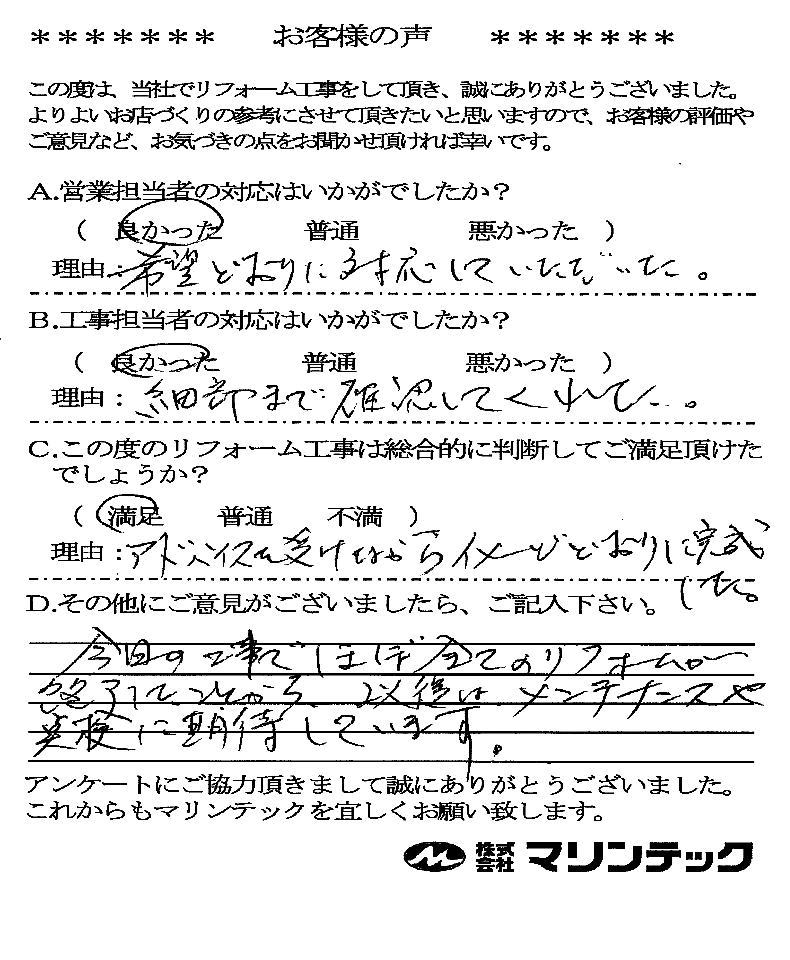 ＊＊＊＊＊＊＊ お客様の声 ＊＊＊＊＊＊＊
この度は、当社でリフォーム工事をして頂き、誠にありがとうございました。
よりよいお店づくりの参考にさせて頂きたいと思いますので、お客様の評価や
ご意見など、お気づきの点をお聞かせ頂ければ幸いです。
A.営業担当者の対応はいかがでしたか？
（ 良かった 普通 悪かった ）
理由：希望どおりに対応していただいた。
B.工事担当者の対応はいかがでしたか？
（ 良かった 普通 悪かった ）
理由：細部まで確認してくれた。
C.この度のリフォーム工事は総合的に判断してご満足頂けた
でしょうか？
（ 満足 普通 不満 ）
理由：アドバイスを受けながらイメージどおりに完成
した。
D.その他にご意見がございましたら、ご記入下さい。
今回の工事でほぼ全てのリフォームが
終了したことから、以後はメンテナンスや
に期待しています。
アンケートにご協力頂きまして誠にありがとうございました。
これからもマリンテックを宜しくお願い致します。
株式会社 マリンテック